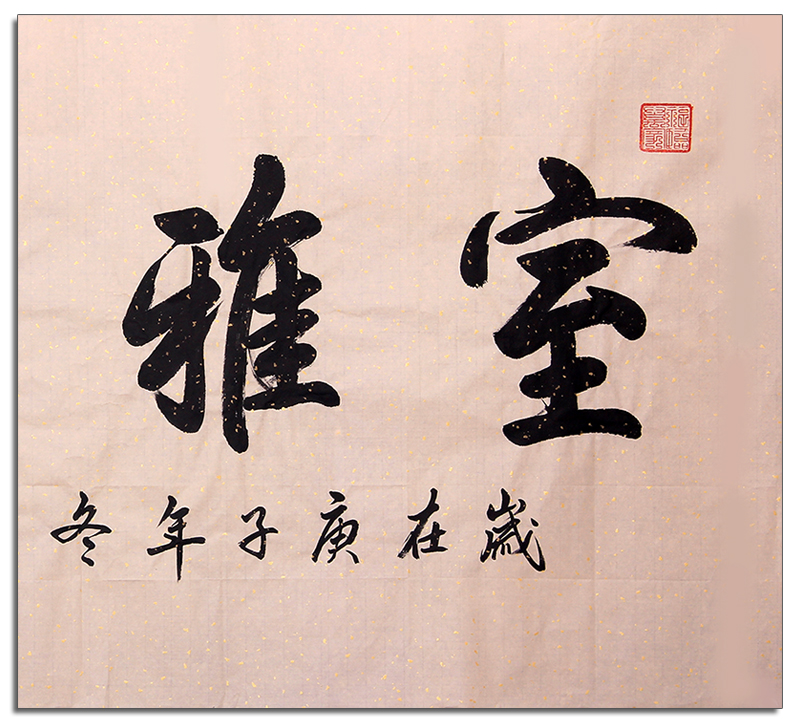 室雅
歲在庚子年冬